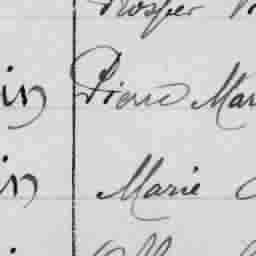 Prosper
in Pierre Mar
in Marie